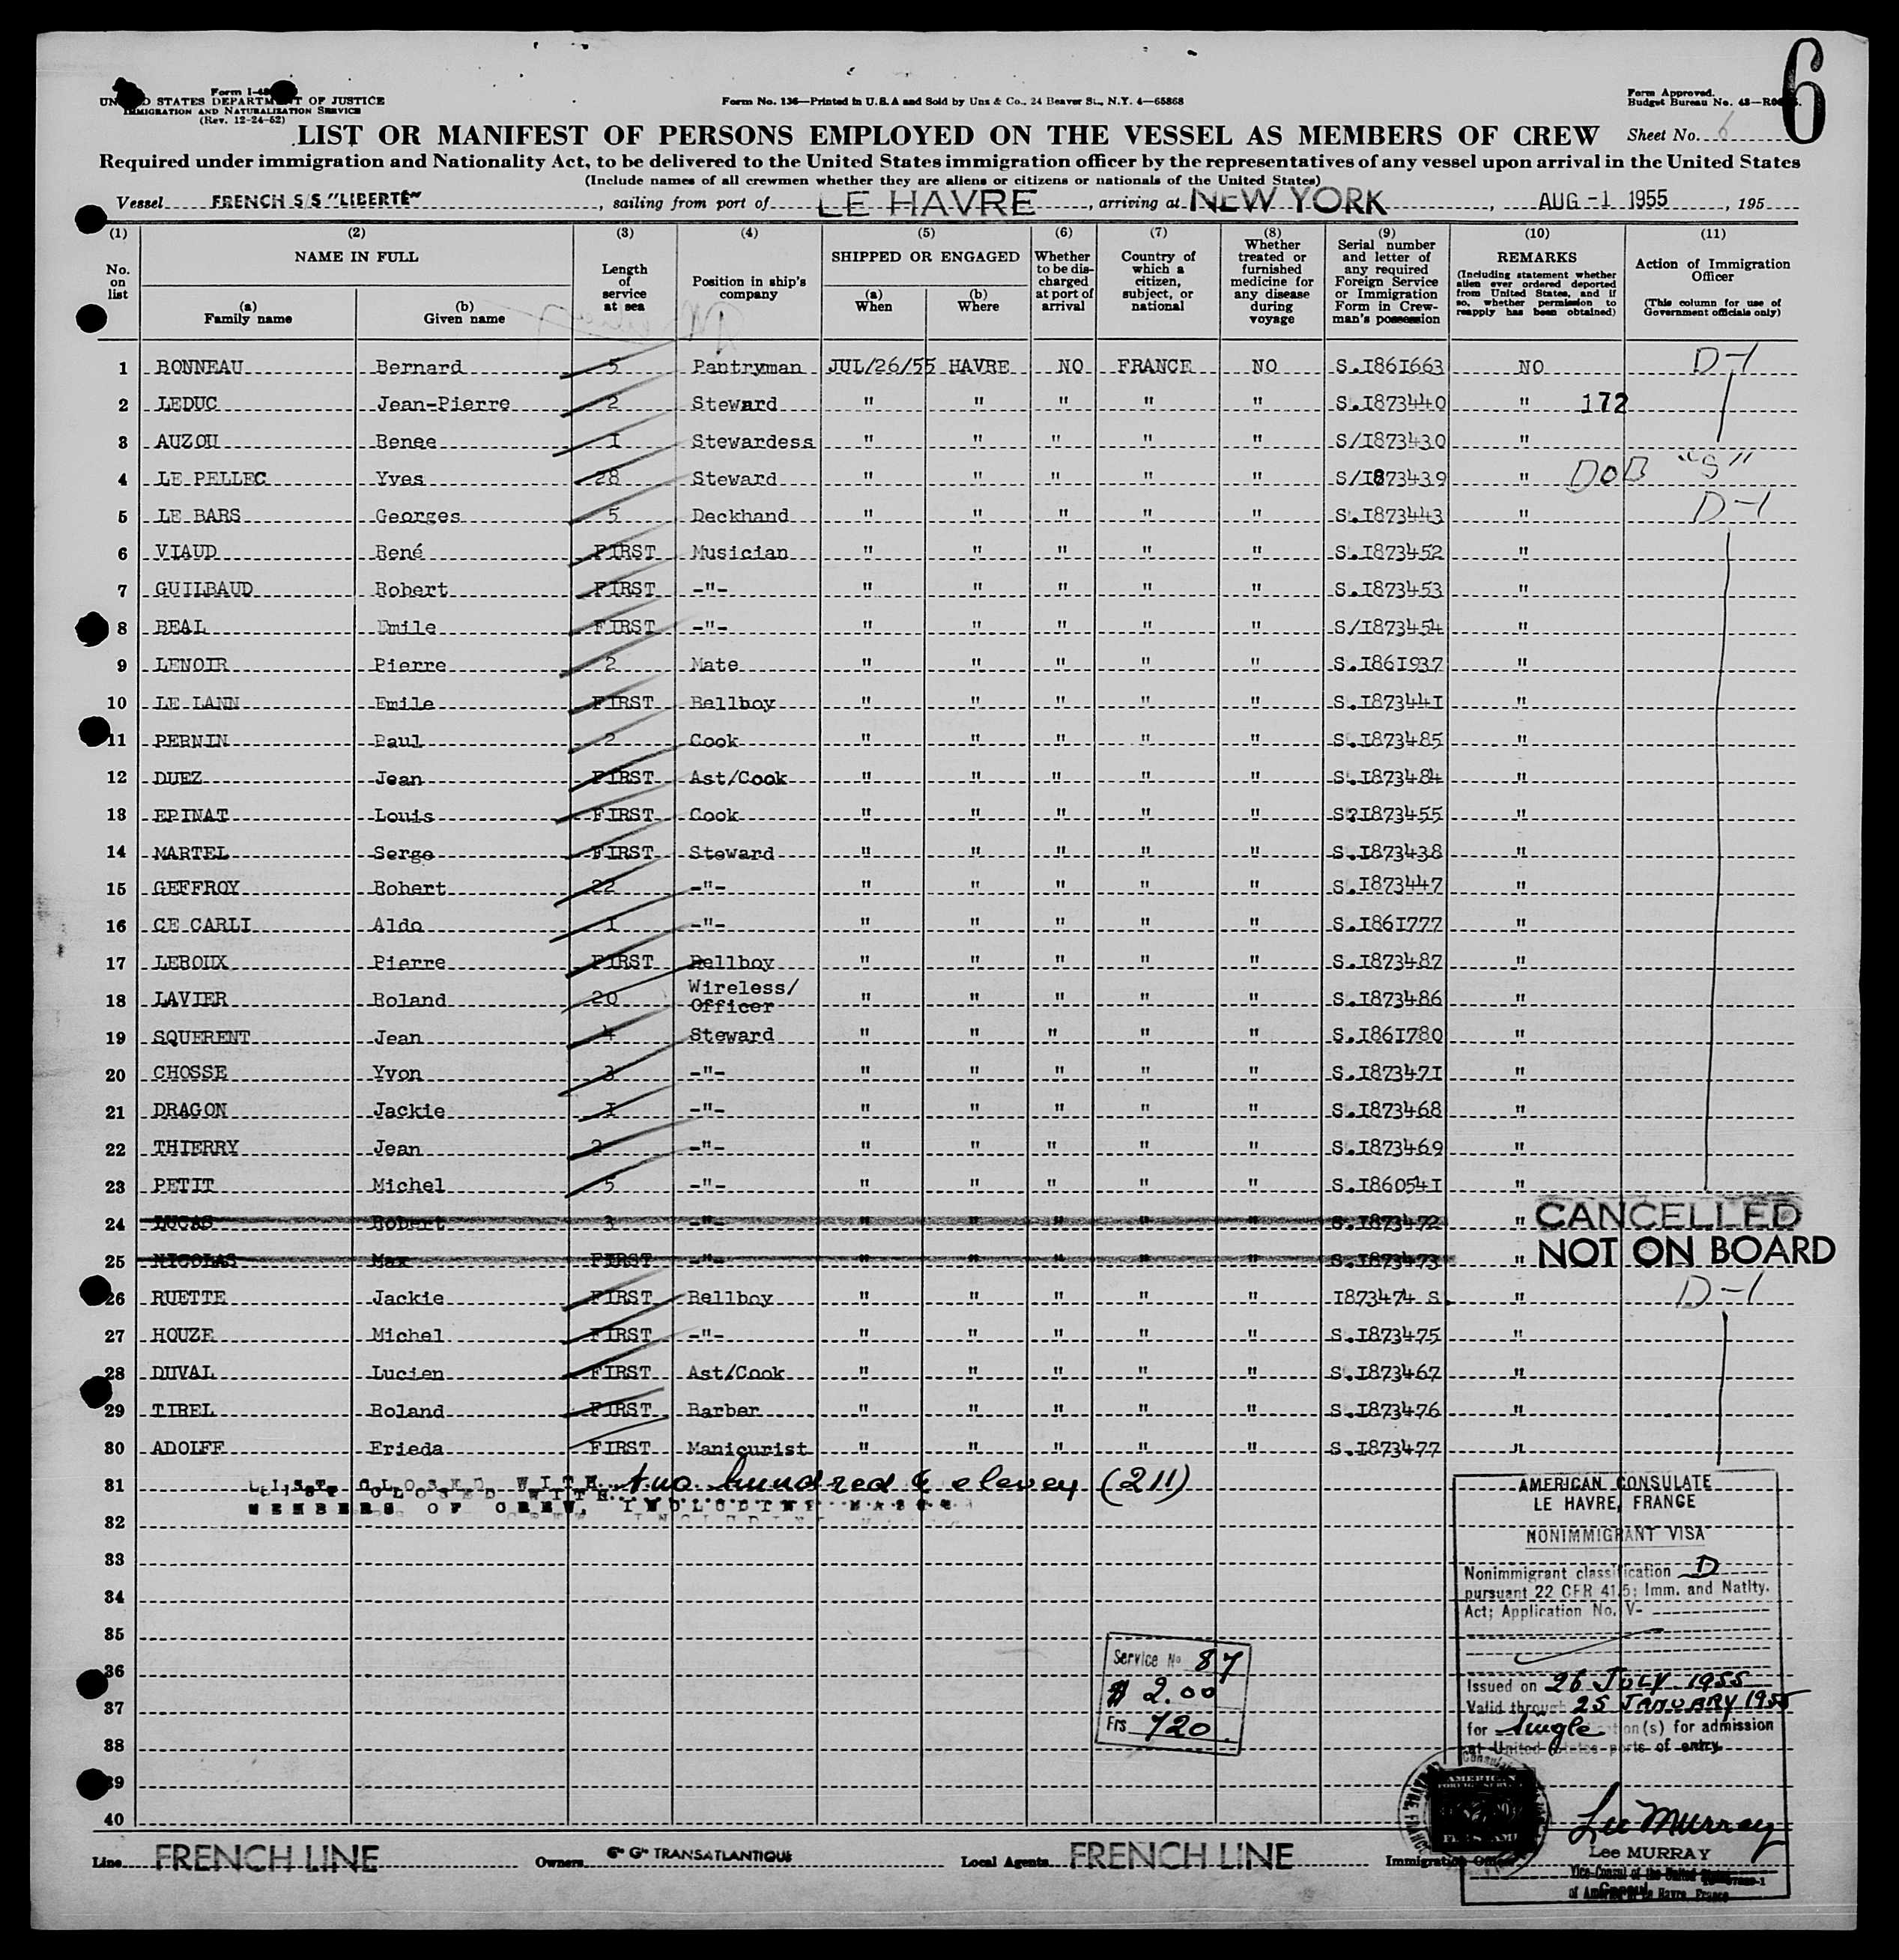 6
Form I-48
UNITED STATES DEPARTMENT OF JUSTICE
IMMIGRATION AND NATURALIZATION SERVICE
(Rev. 12-24-52)
Form No. 136—Printed in U.S.A and Sold by Unz & Co., 24 Beaver St., N.Y. 4—65868
Form Approved.
Budget Bureau No. 43—R0
LIST OR MANIFEST OF PERSONS EMPLOYED ON THE VESSEL AS MEMBERS OF CREW
Sheet No. 6
Required under immigration and Nationality Act, to be delivered to the United States immigration officer by the representatives of any vessel upon arrival in the United States
(Include names of all crewmen whether they are aliens or citizens or nationals of the United States)
Vessel FRENCH S/S "LIBERTÉ", sailing from port of LE HAVRE, arriving at NEW YORK, AUG -1 1955, 195
(1) (2) (3) (4) (5) (6) (7) (8) (9) (10) (11)
No. on list
NAME IN FULL
(a) Family name
(b) Given name
Length of service at sea
Position in ship's company
SHIPPED OR ENGAGED
(a) When
(b) Where
Whether to be discharged at port of arrival
Country of which a citizen, subject, or national
Whether treated or furnished medicine for any disease during voyage
Serial number and letter of any required Foreign Service or Immigration Form in Crewman's possession
REMARKS
(Including statement whether alien ever ordered deported from United States, and if so, whether permission to reapply has been obtained)
Action of Immigration Officer
(This column for use of Government officials only)
1 BONNEAU Bernard 5 Pantryman JUL/26/55 HAVRE NO FRANCE NO S.I861663 NO D-1
2 LEDUC Jean-Pierre 2 Steward " " " " " S.I873440 " 172
3 AUZOU Renee I Stewardess " " " " " S/I873430 "
4 LE PELLEC Yves 28 Steward " " " " " S/I873439 " DOB "S"
5 LE BARS Georges 5 Deckhand " " " " " S.I873443 " D-1
6 VIAUD René FIRST Musician " " " " " S.I873452 "
7 GUILBAUD Robert FIRST -"- " " " " " S.I873453 "
8 BEAL Emile FIRST -"- " " " " " S/I873454 "
9 LENOIR Pierre 2 Mate " " " " " S.I861937 "
10 LE LANN Emile FIRST Bellboy " " " " " S.I87344I "
11 PERNIN Paul 2 Cook " " " " " S.I873485 "
12 DUEZ Jean FIRST Ast/Cook " " " " " S.I873484 "
13 EPINAT Louis FIRST Cook " " " " " S?I873455 "
14 MARTEL Serge FIRST Steward " " " " " S.I873438 "
15 GEFFROY Robert 22 -"- " " " " " S.I873447 "
16 CE CARLI Aldo I -"- " " " " " S.I861777 "
17 LEROUX Pierre FIRST Bellboy " " " " " S.I873487 "
18 LAVIER Roland 20 Wireless/Officer " " " " " S.I873486 "
19 SQUERENT Jean 4 Steward " " " " " S.I861780 "
20 CHOSSE Yvon 3 -"- " " " " " S.I87347I "
21 DRAGON Jackie I -"- " " " " " S.I873468 "
22 THIERRY Jean 2 -"- " " " " " S.I873469 "
23 PETIT Michel 5 -"- " " " " " S.I86054I "
24 LUCAS Robert 3 -"- " " " " " S.I873472 " CANCELLED
25 NICOLAS Max FIRST -"- " " " " " S.I873473 " NOT ON BOARD
26 RUETTE Jackie FIRST Bellboy " " " " " I873474 S. " D-1
27 HOUZE Michel FIRST -"- " " " " " S.I873475 "
28 DUVAL Lucien FIRST Ast/Cook " " " " " S.I873467 "
29 TIREL Roland FIRST Barber " " " " " S.I873476 "
30 ADOLFF Frieda FIRST Manicurist " " " " " S.I873477 "
31 LIST CLOSED WITH two hundred & eleven (211)
MEMBERS OF CREW, INCLUDING MASTER
32
33
34
35
36
37
38
39
40
AMERICAN CONSULATE
LE HAVRE, FRANCE
NONIMMIGRANT VISA
Nonimmigrant classification D
pursuant 22 CFR 41.5; Imm. and Natlty.
Act; Application No. V-
Issued on 26 JULY 1955
Valid through 25 JANUARY 1955
for Single (s) for admission
at United States ports of entry.
Service No 87
$ 2.00
Frs 720
AMERICAN
FOREIGN SERVICE
Lee Murray
Lee MURRAY
Vice-Consul of the United States
of America Le Havre, France
Line FRENCH LINE Owners Cie Gle TRANSATLANTIQUE Local Agents FRENCH LINE Immigration Officer